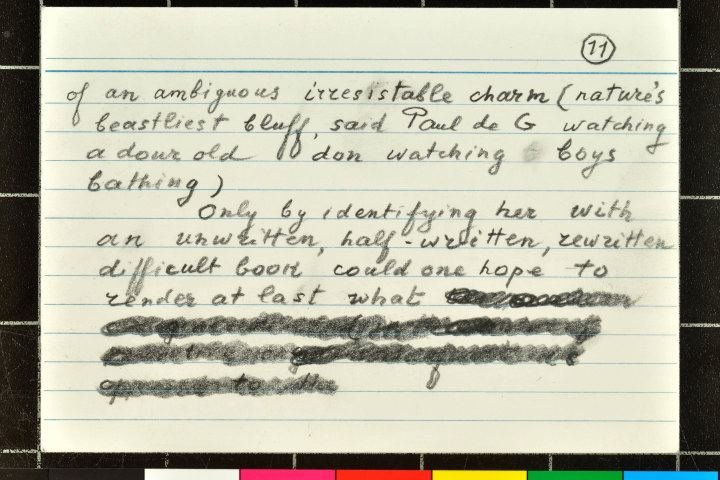 11
of an ambiguous irresistable charm (nature's
beastliest bluff, said Paul de G watching
a dour old don watching boys
bathing)
Only by identifying her with
an unwritten, half-written, rewritten
difficult book could one hope to
render at last what